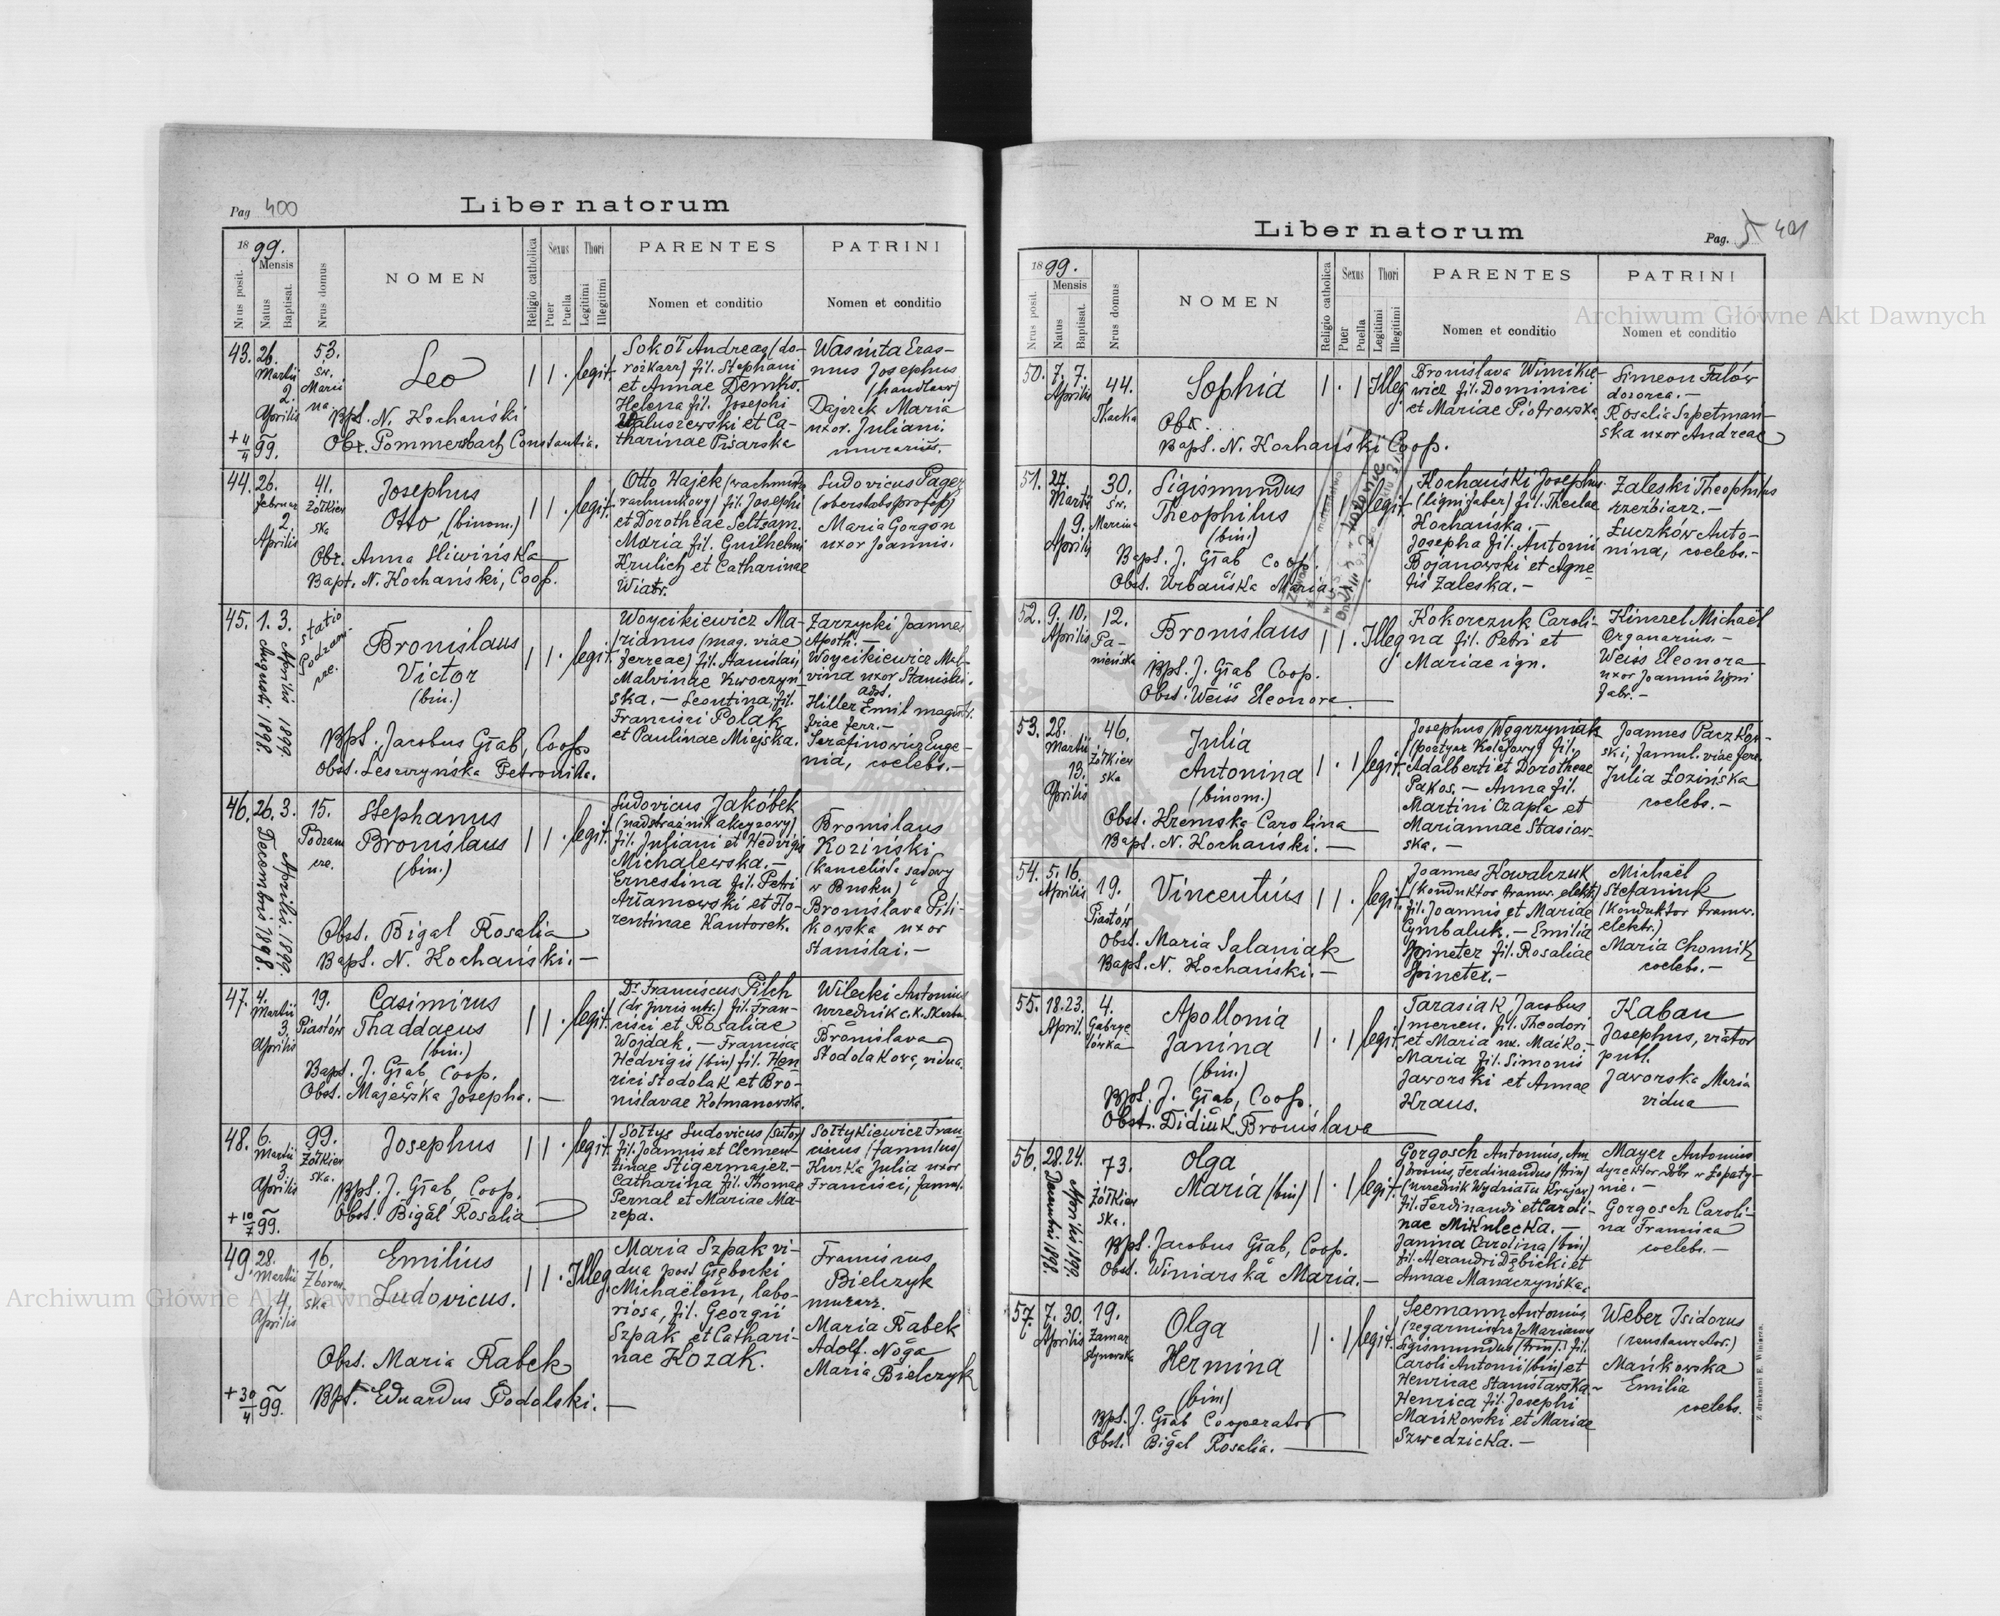 Pag 400
Liber natorum
1899.
Nrus posit.
Mensis
Natus
Baptisat.
Nrus domus
NOMEN
Religio catholica
Sexus
Puer
Puella
Thori
Legitimi
Illegitimi
PARENTES
Nomen et conditio
PATRINI
Nomen et conditio
43.
26. Martii
2. Aprilis
53.
św.
Marci
na.
Leo
1 1 . legit.
Sokół Andreas (do-
rożkarz) fil. Stephani
et Annae Demko.
Helena fil. Josephi
et Ca-
tharinae Pisarska
Waśnita Eras-
mus Josephus
(handlew)
Dajczek Maria
uxor. Juliani
murarius.
Bpt. N. Kochański
Obr. Pommersbach Constantia.
+ 4/4 99.
44.
26. Februar
2. Aprilis
41.
Żółkiew
ska
Josephus
Otto (binom.)
1 1 . legit.
Otto Hajek (wachmistz
rachunkowy) fil. Josephi
et Dorotheae Seltsam.
Maria fil. Guilhelmi
Krulich et Catharinae
Wiatr.
Ludovicus Pager
(oberstabsprofos)
Maria Gorgon
uxor Joannis.
Obr. Anna Śliwińska
Bapt. N. Kochański, Coop.
45.
1. Augusti 1898.
3. Aprilis 1899.
statio
Podzam-
cze.
Bronislaus
Victor
(bin.)
1 1 . legit.
Woycikiewicz Ma-
rianus (mag. viae
ferreae) fil. Stanislai,
Malvinae Kwoczyń-
ska. — Leontina, fil.
Francisci Polak
et Paulinae Miejska.
Zarzycki Joannes
Apoth. —
Woycikiewicz Mal-
vina uxor Stanislai.
ads.
Hiller Emil magistr.
viae ferr. —
Serafinowicz Euge-
nia, coelebs. —
Bpt. Jacobus Głąb, Coop.
Obst. Leszczyńska Petronila.
46.
26. Decembris 1898.
3. Aprilis. 1899
15.
Podzam
cze.
Stephanus
Bronislaus
(bin.)
1 1 . legit.
Ludovicus Jakóbek
(nadstrażnik akcyzowy)
fil. Juliani et Hedvigis
Michalewska. —
Ernestina fil. Petri
Artamowski et Flo-
rentinae Kantorek.
Bronislaus
Koziński
(kancelista sądowy
w Busku)
Bronislava Piti-
kowska uxor
Stanislai. —
Obst. Bigal Rosalia
Bapt. N. Kochański. —
47.
4. Martii
3. Aprilis
19.
Piastów
Casimirus
Thaddaeus
(bin.)
1 1 . legit.
Dr Franciscus Pilch
(dr juris utr.) fil. Fran-
cisci et Rosaliae
Wojdak. — Francisca
Hedvigis (bin) fil. Hen
rici Stodolak et Bro-
nislavae Kotmanowska.
Wilecki Antonius
urzędnik c.k. Skarbu.
Bronislava
Stodolakowa, vidua.
Bapt. J. Głąb, Coop.
Obst. Majewska Josepha. —
48.
6. Martii
3. Aprilis
99.
Żółkiew
ska.
Josephus
1 1 . legit.
Sołtys Ludovicus (sutor)
fil. Joannis et Clemen-
tinae Stigermajer. —
Catharina fil. Thomae
Pernal et Mariae Ma-
zepa.
Sołtykiewicz Fran-
ciscus (famulus)
Kurka Julia uxor
Francisci, famul.
Bpt. J. Głąb, Coop.
Obst. Bigal Rosalia
+ 10/7 99.
49.
28. Martii
4. Aprilis
16.
Zborow
ska
Emilius
Ludovicus.
1 1 . Illeg.
Maria Szpak vi-
dua post Głębocki
Michaëlem, labo-
riosa, fil. Georgii
Szpak et Cathari-
nae Kozak.
Franciscus
Bielczyk
murarz.
Maria Rabek
Adolf Noga
Maria Bielczyk
Obst. Maria Rabek
Bpt. Eduardus Podolski. —
+ 30/4 99.
Liber natorum
Pag. 5 401
1899.
Nrus posit.
Mensis
Natus
Baptisat.
Nrus domus
NOMEN
Religio catholica
Sexus
Puer
Puella
Thori
Legitimi
Illegitimi
PARENTES
Nomen et conditio
PATRINI
Nomen et conditio
50.
7. 7.
Aprilis
44.
Tkacka
Sophia
1 . 1 Illeg.
Bronislava Winnikie-
wicz fil. Dominici
et Mariae Piotrowska
Simeon Fatów
dozorca. —
Rosalia Szpetmań-
ska uxor Andreae
Obr. . . .
Bapt. N. Kochański Coop.
51.
27. Martii
9. Aprilis
30.
św.
Marcina
Sigismundus
Theophilus
(bin.)
legit.
Kochański Josephus
(ligni faber) fil. Theclae
Kochańska. —
Josepha fil. Antonii
Bojanowski et Agne-
tis Zaleska. —
Zaleski Theophilus
rzeźbiarz. —
Łuczków Anto-
nina, coelebs. —
Bapt. J. Głąb Coop.
Obst. Urbańska Maria
52.
9. 10.
Aprilis
12.
Pa-
nieńska
Bronislaus
1 1 . Illeg
Kokorczuk Caroli-
na fil. Petri et
Mariae ign.
Kinzel Michaël
Organarius. —
Weiss Eleonora
uxor Joannis ligni
fabr. —
Bpt. J. Głąb Coop.
Obst. Weiss Eleonora.
53.
28. Martii
13. Aprilis
46.
Żółkiew
ska
Julia
Antonina
(binom.)
1 . 1 legit.
Josephus Węgrzyniak
(portyer kolejowy) fil.
Adalberti et Dorotheae
Pakos. — Anna fil.
Martini Czapla et
Mariannae Stasiow-
ska. —
Joannes Paczkow-
ski, famul. viae ferr.
Julia Łozińska
coelebs. —
Obst. Kremska Carolina
Bapt. N. Kochański. —
54.
5. 16.
Aprilis
19.
Piastów
Vincentius
1 1 . legit.
Joannes Kowalczuk
(konduktor tramw. elektr.)
fil. Joannis et Mariae
Cymbaluk. — Emilia
Spineter fil. Rosaliae
Spineter. —
Michaël
Stefaniuk
(konduktor tramw.
elektr.)
Maria Chomik
coelebs. —
Obst. Maria Salaniak
Bapt. N. Kochański. —
55.
18. 23.
April.
4.
Gabrye
lówka
Apollonia
Janina
(bin.)
1 . 1 legit.
Tarasiak Jacobus
mercen. fil. Theodori
et Maria ux. Maiko-
Maria fil. Simonis
Jaworski et Annae
Kraus.
Kaban
Josephus, viator
publ.
Jaworska Maria
vidua
Bpt. J. Głąb, Coop.
Obst. Didiuk Bronislava
56.
28. Decembris 1898.
24. Aprilis 1899.
73.
Żółkiew
ska.
Olga
Maria (bin)
1 . 1 legit.
Gorgosch Antonius, Am
bronus, Ferdinandus (trin)
(urzednik Wydziału Krajow)
fil. Ferdinandi et Caroli-
nae Mikulecka. —
Janina Carolina (bin)
fil. Alexandri Dębicki et
Annae Manaczyńska.
Mayer Antonius
dyrektor dóbr w Łopaty-
nie. —
Gorgosch Caroli-
na Francisca
coelebs. —
Bpt. Jacobus Głąb, Coop.
Obst. Winiarska Maria. —
57.
7. 30.
Aprilis
19.
Zamar
stynowska
Olga
Hermina
(bin)
1 . 1 legit.
Seemann Antonius
(zegarmistrz) Marianus
Sigismundus (trin) fil.
Caroli Antonii (bin) et
Henricae Stanisławska —
Henrica fil. Josephi
Mańkowski et Mariae
Szwedzicka. —
Weber Isidorus
Mańkowska
Emilia
coelebs.
Bpt. J. Głąb Cooperator
Obst. Bigal Rosalia.
Z drukarni E. Winiarza.
Archiwum Główne Akt Dawnych
Archiwum Główne Akt Dawnych